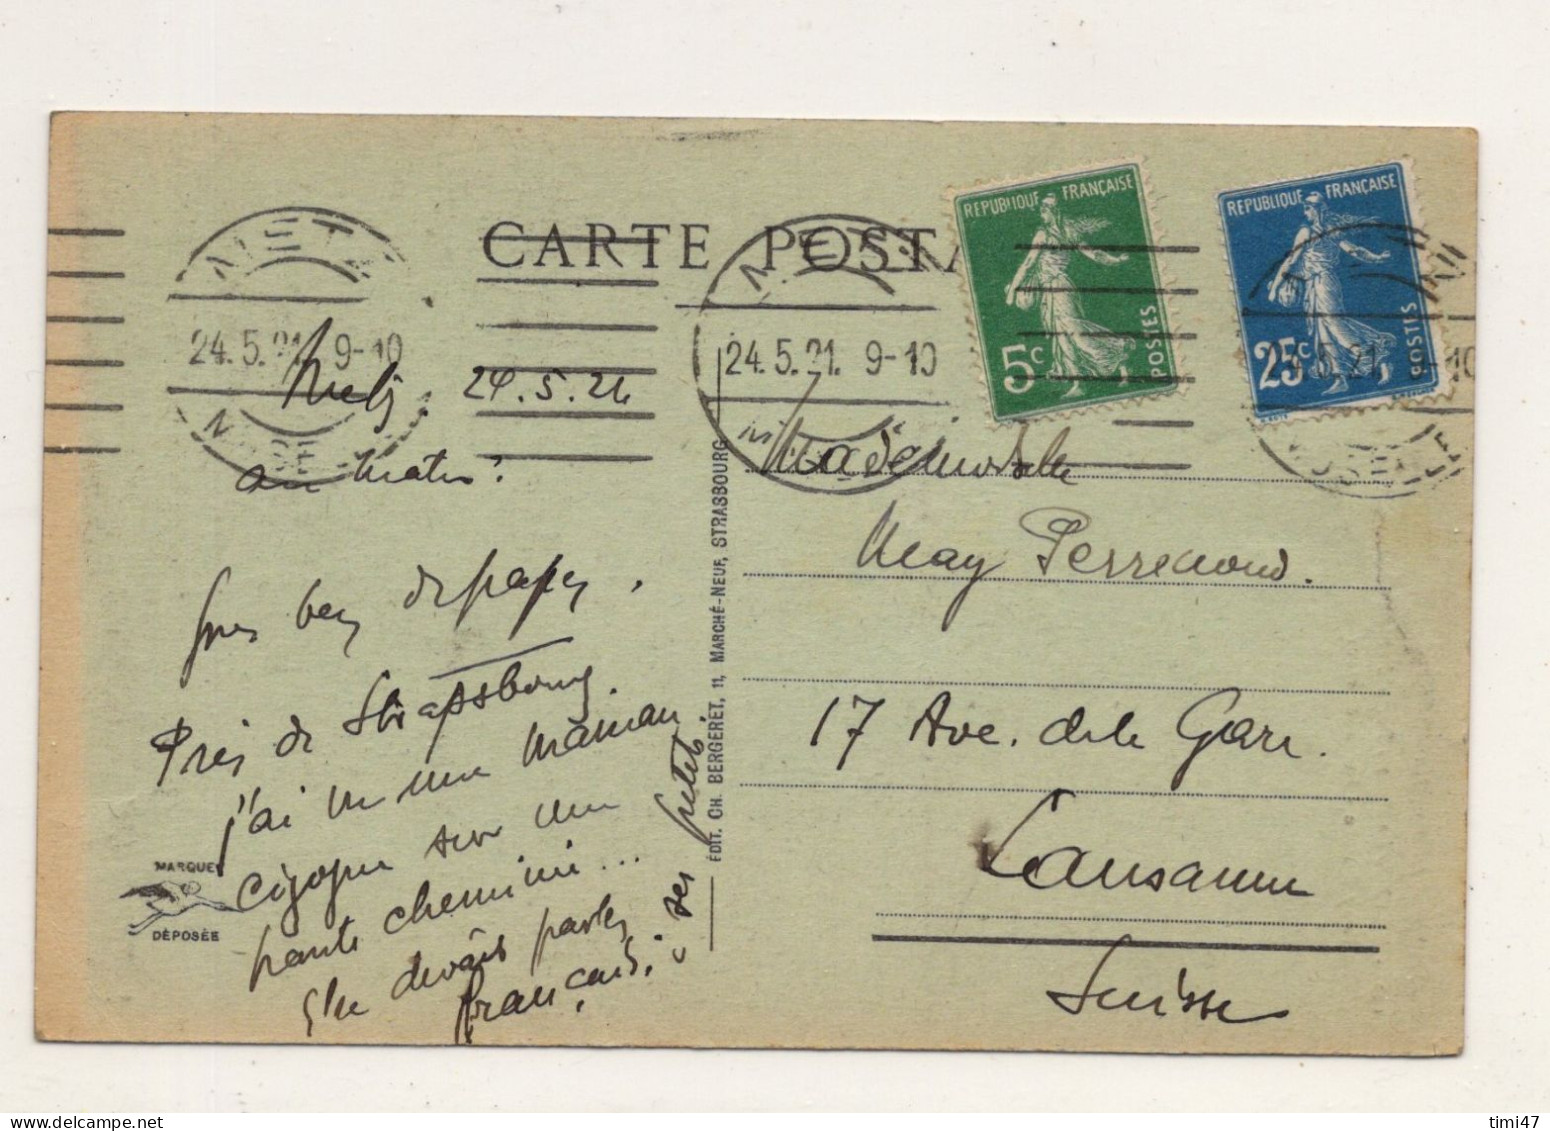 CARTE POSTA
METZ
24.5.21. 9-10
MOSELLE
METZ
24.5.21. 9-10
MOSELLE
REPUBLIQUE FRANÇAISE
5c
POSTES
REPUBLIQUE FRANÇAISE
25c
POSTES
24.5.21. 9-10
MOSELLE
Metz. 24.5.21
au matin.
Près de Strassbourg.
j'ai vu une maman
cigogne sur une
haute cheminée...
Elle devait parler
français! à ses petits.
MARQUE
DÉPOSÉE
ÉDIT. CH. BERGERET, 11, MARCHÉ-NEUF, STRASBOURG
Mademoiselle
May Perrenoud.
17 Ave. de la Gare.
Lausanne
Suisse
timi47